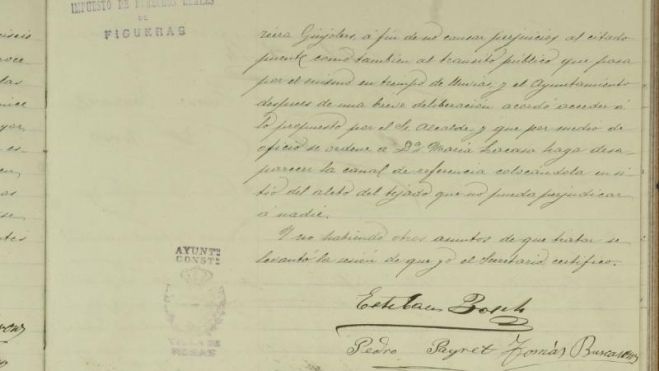 IMPUESTO DE DERECHOS REALES
DE
FIGUERAS
riera Guijolers, á fin de no causar perjuicios al citado
puente como tambien al transito público que pasa
por el mismo en tiempo de lluvias y el Ayuntamiento
despues de una breve deliberación acordó acceder á
lo propuesto por el Sr. Alcalde y que por medio de
oficio se ordene a Dª María Lacasa haga desa-
parecer la canal de referencia colocandola en si-
tio del alero del tejado que no pueda perjudicar
a nadie.
Y no habiendo otros asuntos de que tratar se
levantó la sesión de que yo el Secretario certifico.
AYUNTº
CONSTL
VILLA DE
ROSAS
Esteban Bosch
Pedro Payret Tomás